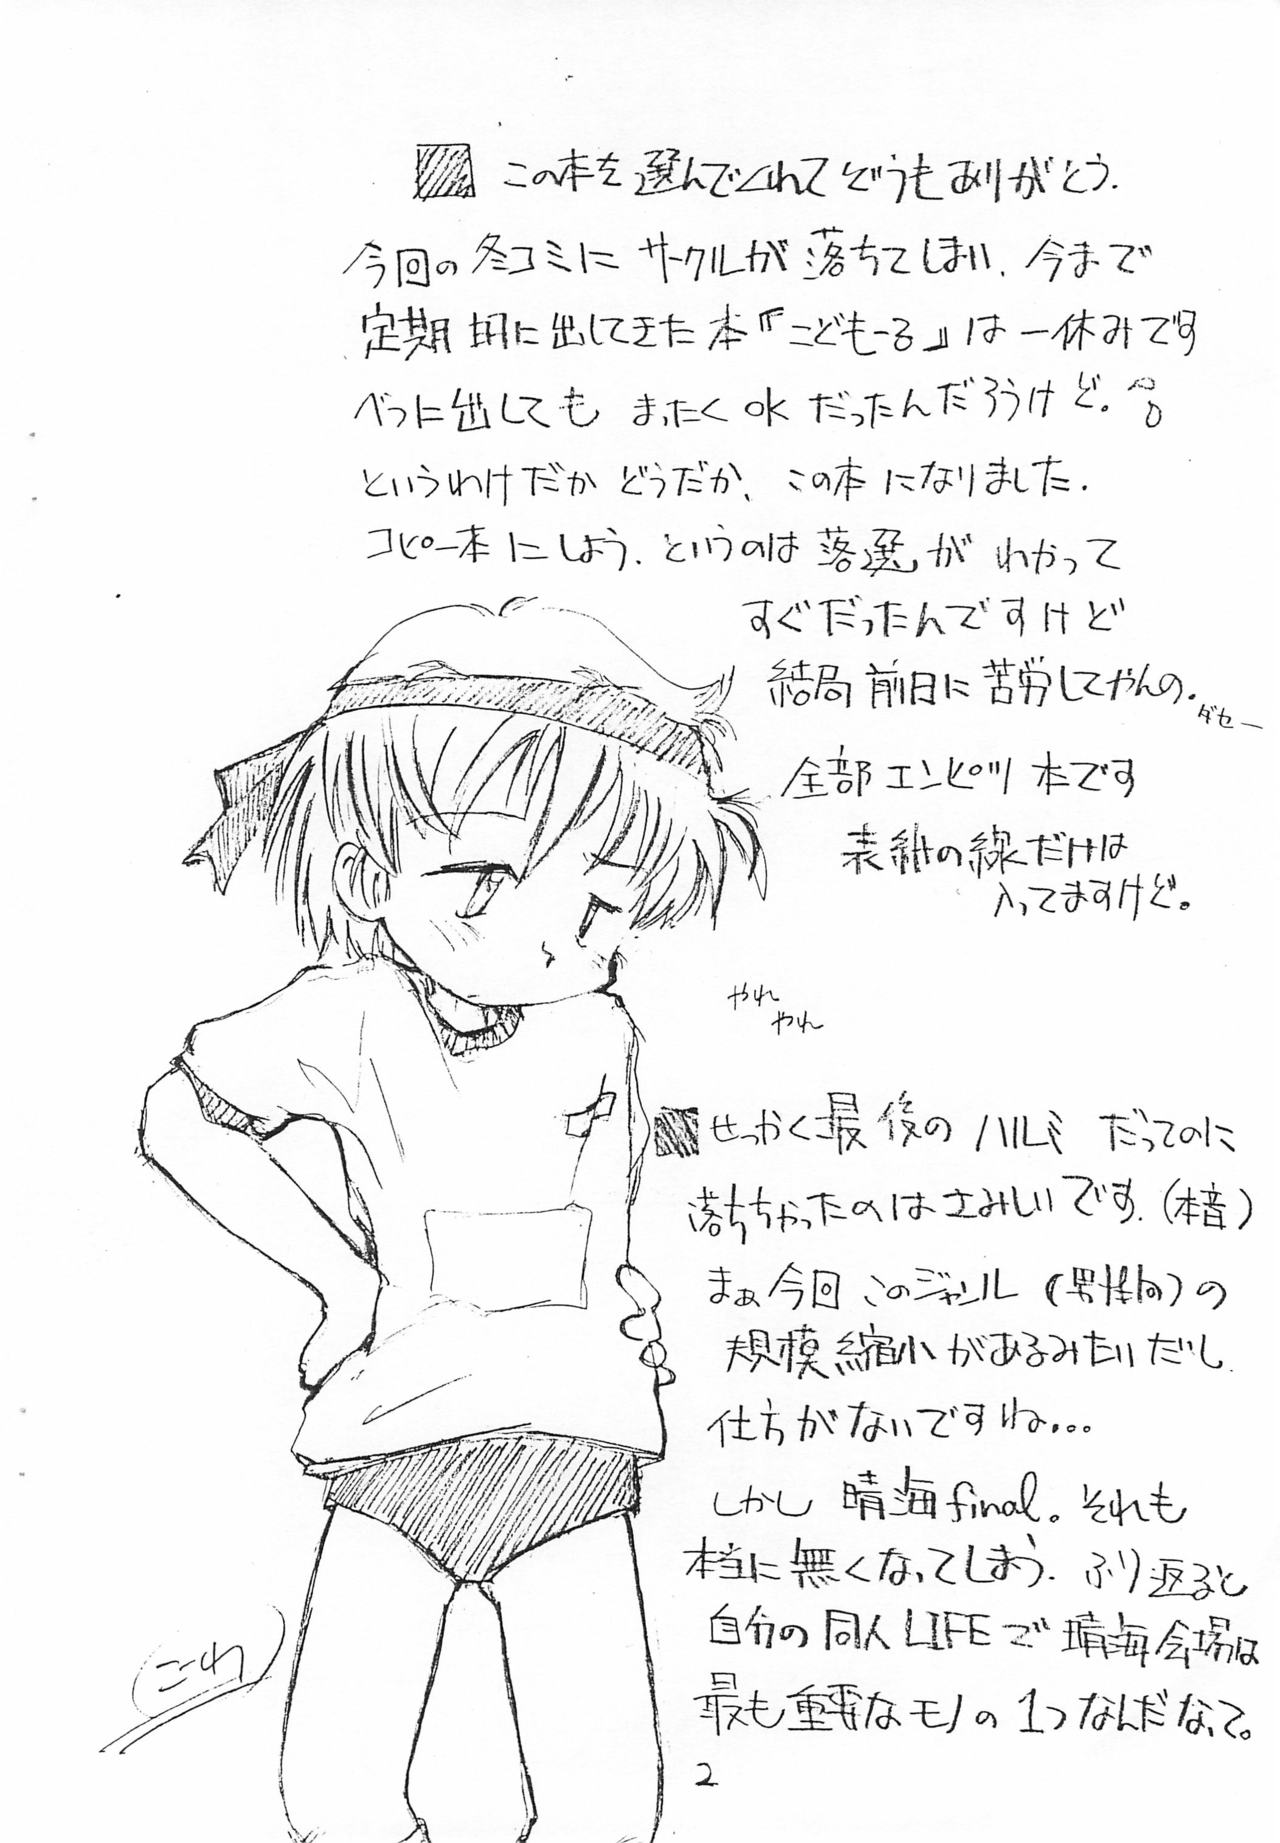 この本を選んでくれてどうもありがとう.
今回の冬コミにサークルが落ちてしまい、今まで
定期的に出してきた本『こどもーる』は一休みです
べつに出してもまったくokだったんだろうけど。
というわけだかどうだか、この本になりました.
コピー本にしよう、というのは落選がわかって
すぐだったんですけど
結局前日に苦労してやんの.
ダセー
全部エンピツ本です
表紙の線だけは
入ってますけど。
やれ
やれ
せっかく最後のハルミだってのに
落ちちゃったのはさみしいです.(本音)
まぁ今回このジャンル(男性向)の
規模縮小があるみたいだし
仕方がないですね...
しかし晴海final。それも
本当に無くなってしまう.ふり返ると
自分の同人LIFEで晴海会場は
最も重要なモノの1つなんだなって。
2